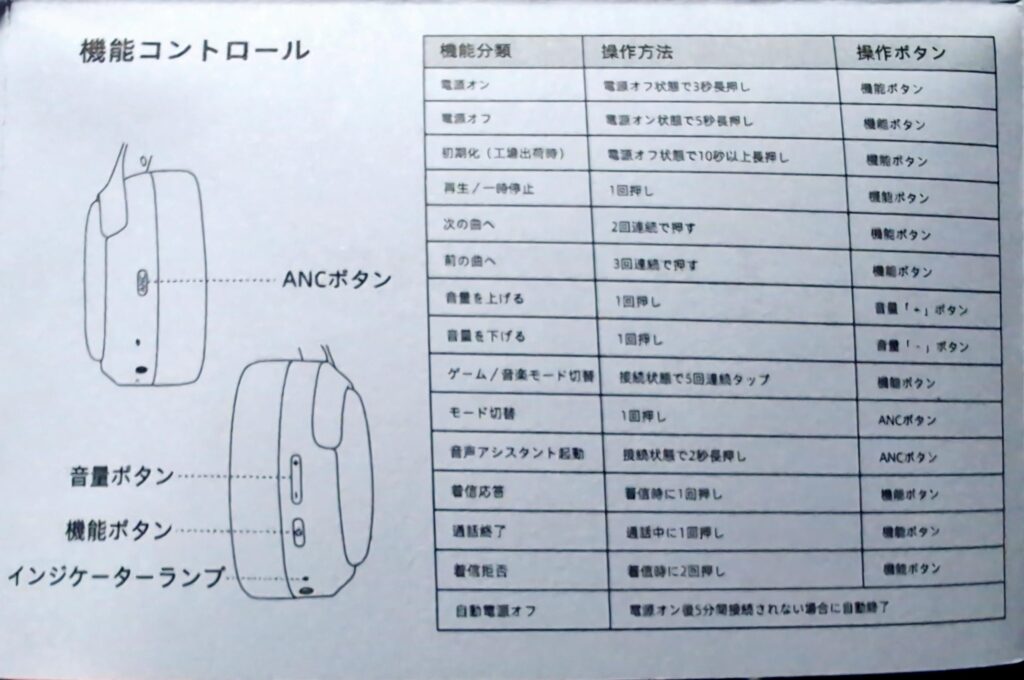 機能コントロール
ANCボタン
音量ボタン
機能ボタン
インジケーターランプ
機能分類 操作方法 操作ボタン
電源オン 電源オフ状態で3秒長押し 機能ボタン
電源オフ 電源オン状態で5秒長押し 機能ボタン
初期化（工場出荷時） 電源オフ状態で10秒以上長押し 機能ボタン
再生／一時停止 1回押し 機能ボタン
次の曲へ 2回連続で押す 機能ボタン
前の曲へ 3回連続で押す 機能ボタン
音量を上げる 1回押し 音量「+」ボタン
音量を下げる 1回押し 音量「-」ボタン
ゲーム／音楽モード切替 接続状態で5回連続タップ 機能ボタン
モード切替 1回押し ANCボタン
音声アシスタント起動 接続状態で2秒長押し ANCボタン
着信応答 着信時に1回押し 機能ボタン
通話終了 通話中に1回押し 機能ボタン
着信拒否 着信時に2回押し 機能ボタン
自動電源オフ 電源オン後5分間接続されない場合に自動終了